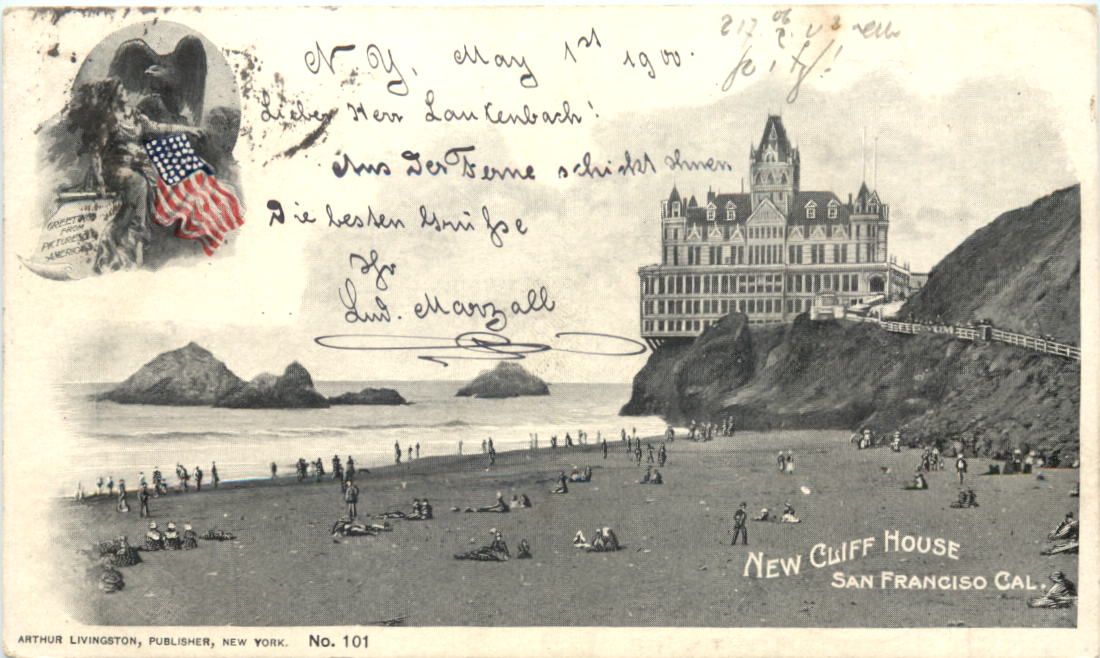 N. Y. May 1st 1900.
Lieber Herr Lautenbach!
Aus Der Ferne schickt Ihnen
Die besten Grüße
Ihr
Lud. Marzall
GREETINGS
FROM
PICTURESQUE
AMERICA
NEW CLIFF HOUSE
SAN FRANCISO CAL.
ARTHUR LIVINGSTON, PUBLISHER, NEW YORK. No. 101